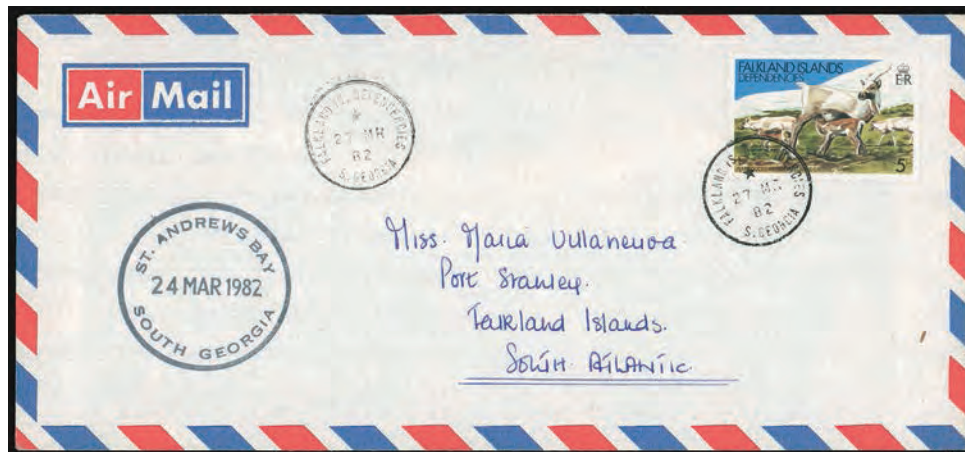 Air Mail
FALKLAND IS. DEPENDENCIES
27 MR
82
S. GEORGIA
FALKLAND ISLANDS
DEPENDENCIES
E R
5
FALKLAND IS. DEPENDENCIES
27 MR
82
S. GEORGIA
ST. ANDREWS BAY
24 MAR 1982
SOUTH GEORGIA
Miss. Maria Villanueva.
Port Stanley.
Falkland Islands.
South Atlantic.